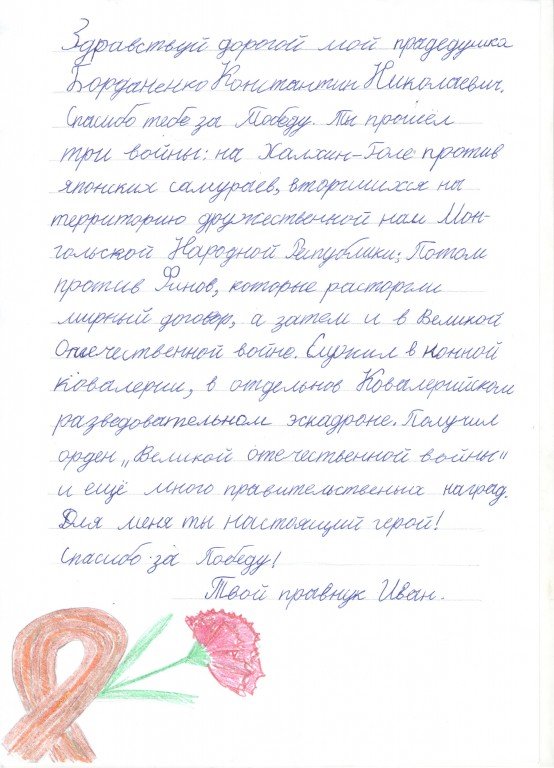 Здравствуй дорогой мой прадедушка
Борданенко Константин Николаевич.
Спасибо тебе за Победу. Ты прошёл
три войны: на Халхин-Голе против
японских самураев, вторшихся на
территорию дружественной нам Мон-
гольской Народной Републики; Потом
против Финов, которые расторгли
мирный договор, а затем и в Великой
Отечественной войне. Служил в конной
Ковалерии, в отдельнов Ковалерийском
разведовательном эскадроне. Получил
орден „Великой отечественной войны"
и ещё много правительственых наград.
Для меня ты настоящий герой!
Спасибо за Победу!
Твой правнук Иван.